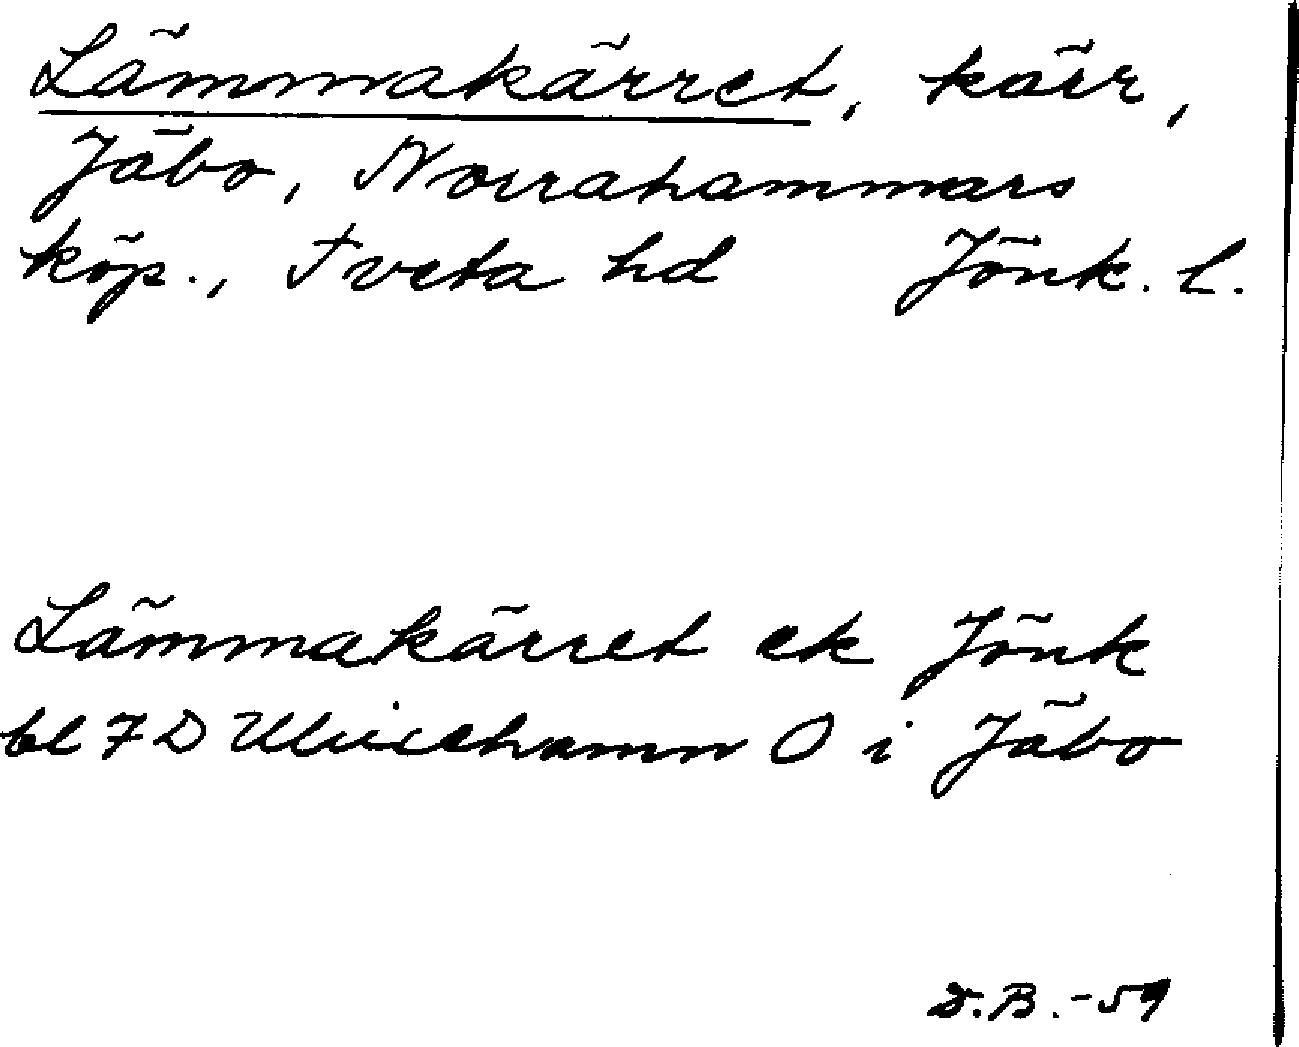 Lämmakärret, kärr,
Jäbo, Norrahammars
köp., Tveta hd Jönk. l.
Lämmakärret ek Jönk
bl 7 D Ulricehamn O i Jäbo
D.B. -59